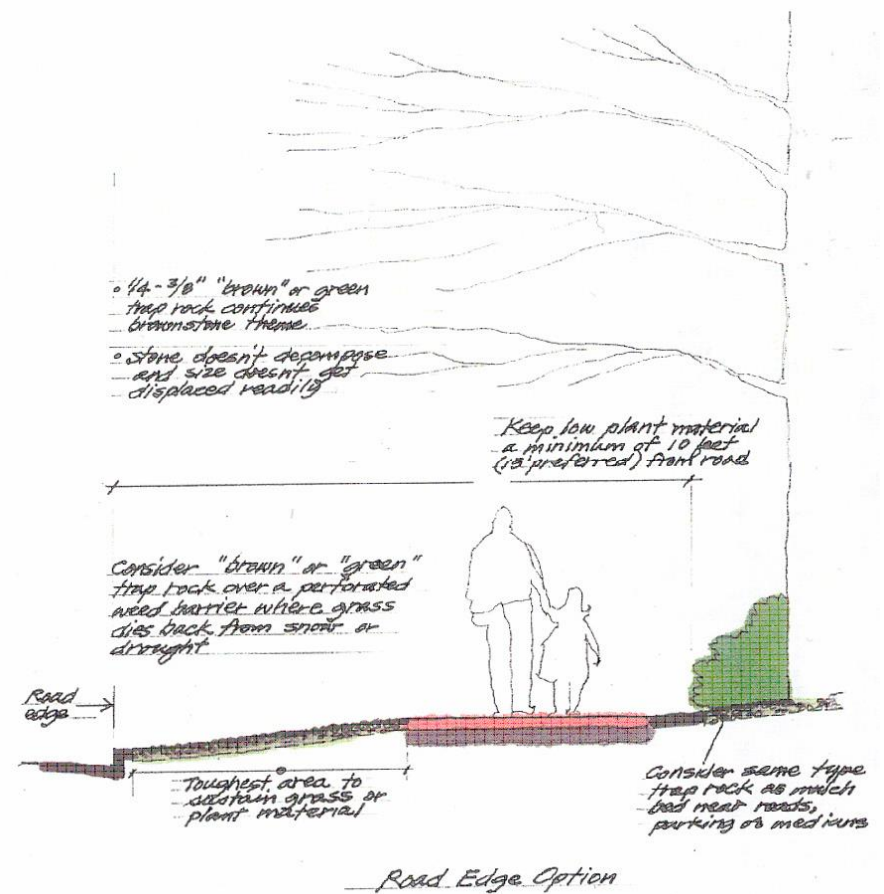 • 1/4 - 3/8" "brown" or green
trap rock continues
brownstone theme
• Stone doesn't decompose
and size doesn't get
displaced readily
Keep low plant material
a minimum of 10 feet
(15' preferred) from road
Consider "brown" or "green"
trap rock over a perforated
weed barrier where grass
dies back from snow or
drought
Road
edge
Toughest area to
sustain grass or
plant material
Consider same type
trap rock as mulch
bed near roads,
parking or medians
Road Edge Option